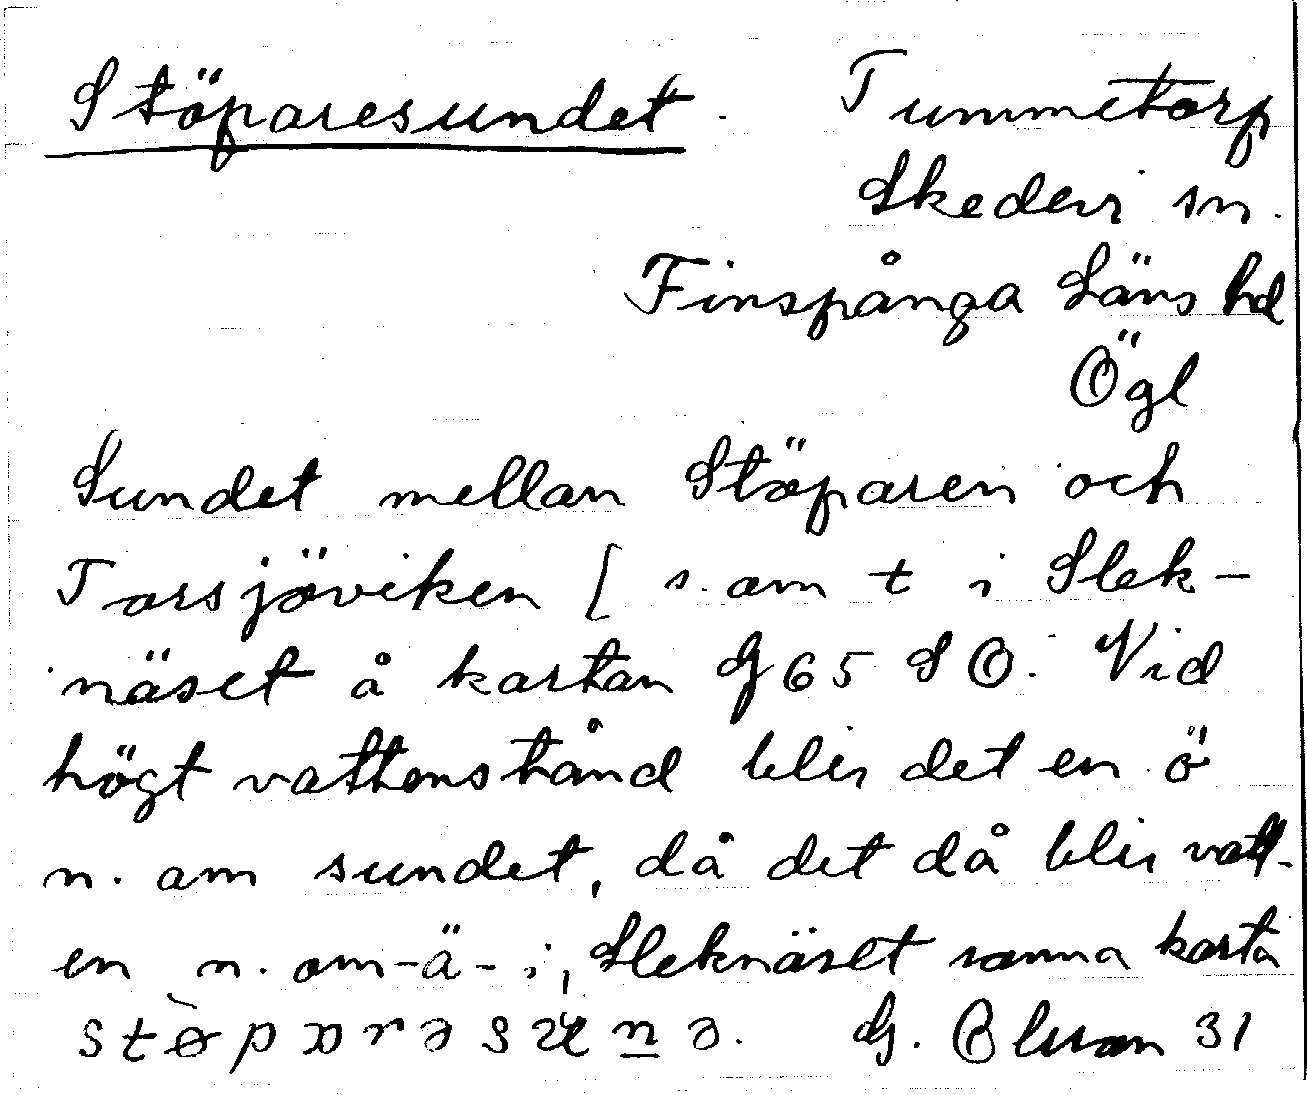 Stöparesundet. Tummetorp
Skedevi sn.
Finspånga Läns hd
Ögl
Sundet mellan Stöparen och
Torsjöviken [ s. om t i Slek-
näset å kartan G 65 SO. Vid
högt vattenstånd blir det en ö
n. om sundet, då det då blir vatt-
en n. om -ä- i, Sleknäset samma karta
G. Olson 31